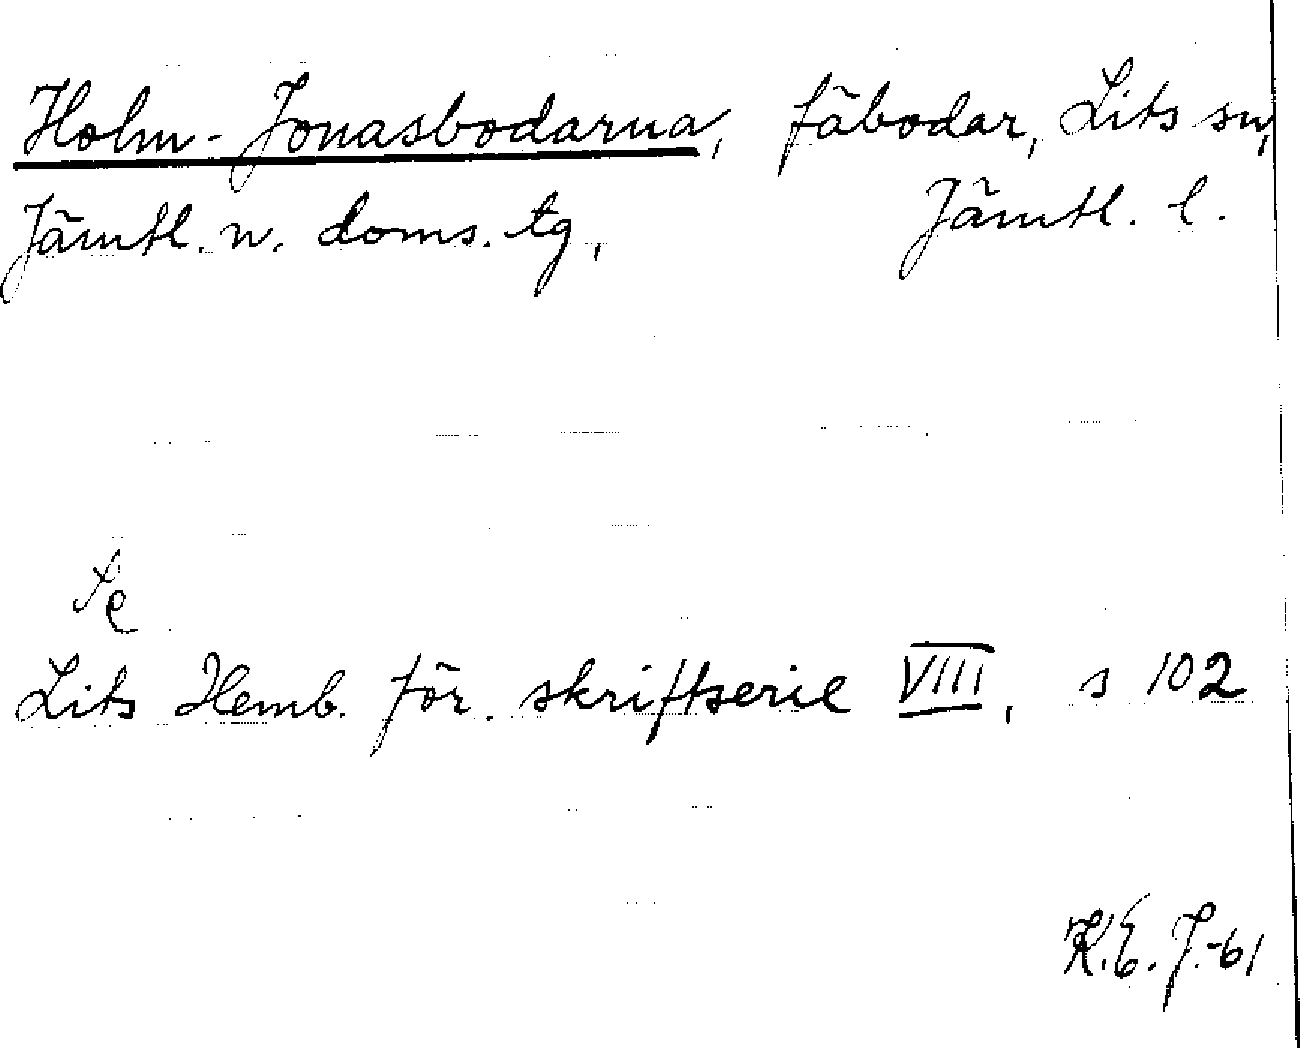 Holm-Jonasbodarna, fäbodar, Lits sn,
Jämtl. n. doms. tg, Jämtl. l.
Se
Lits Hemb. för. skriftserie VIII, s 102
K.E.J.-61